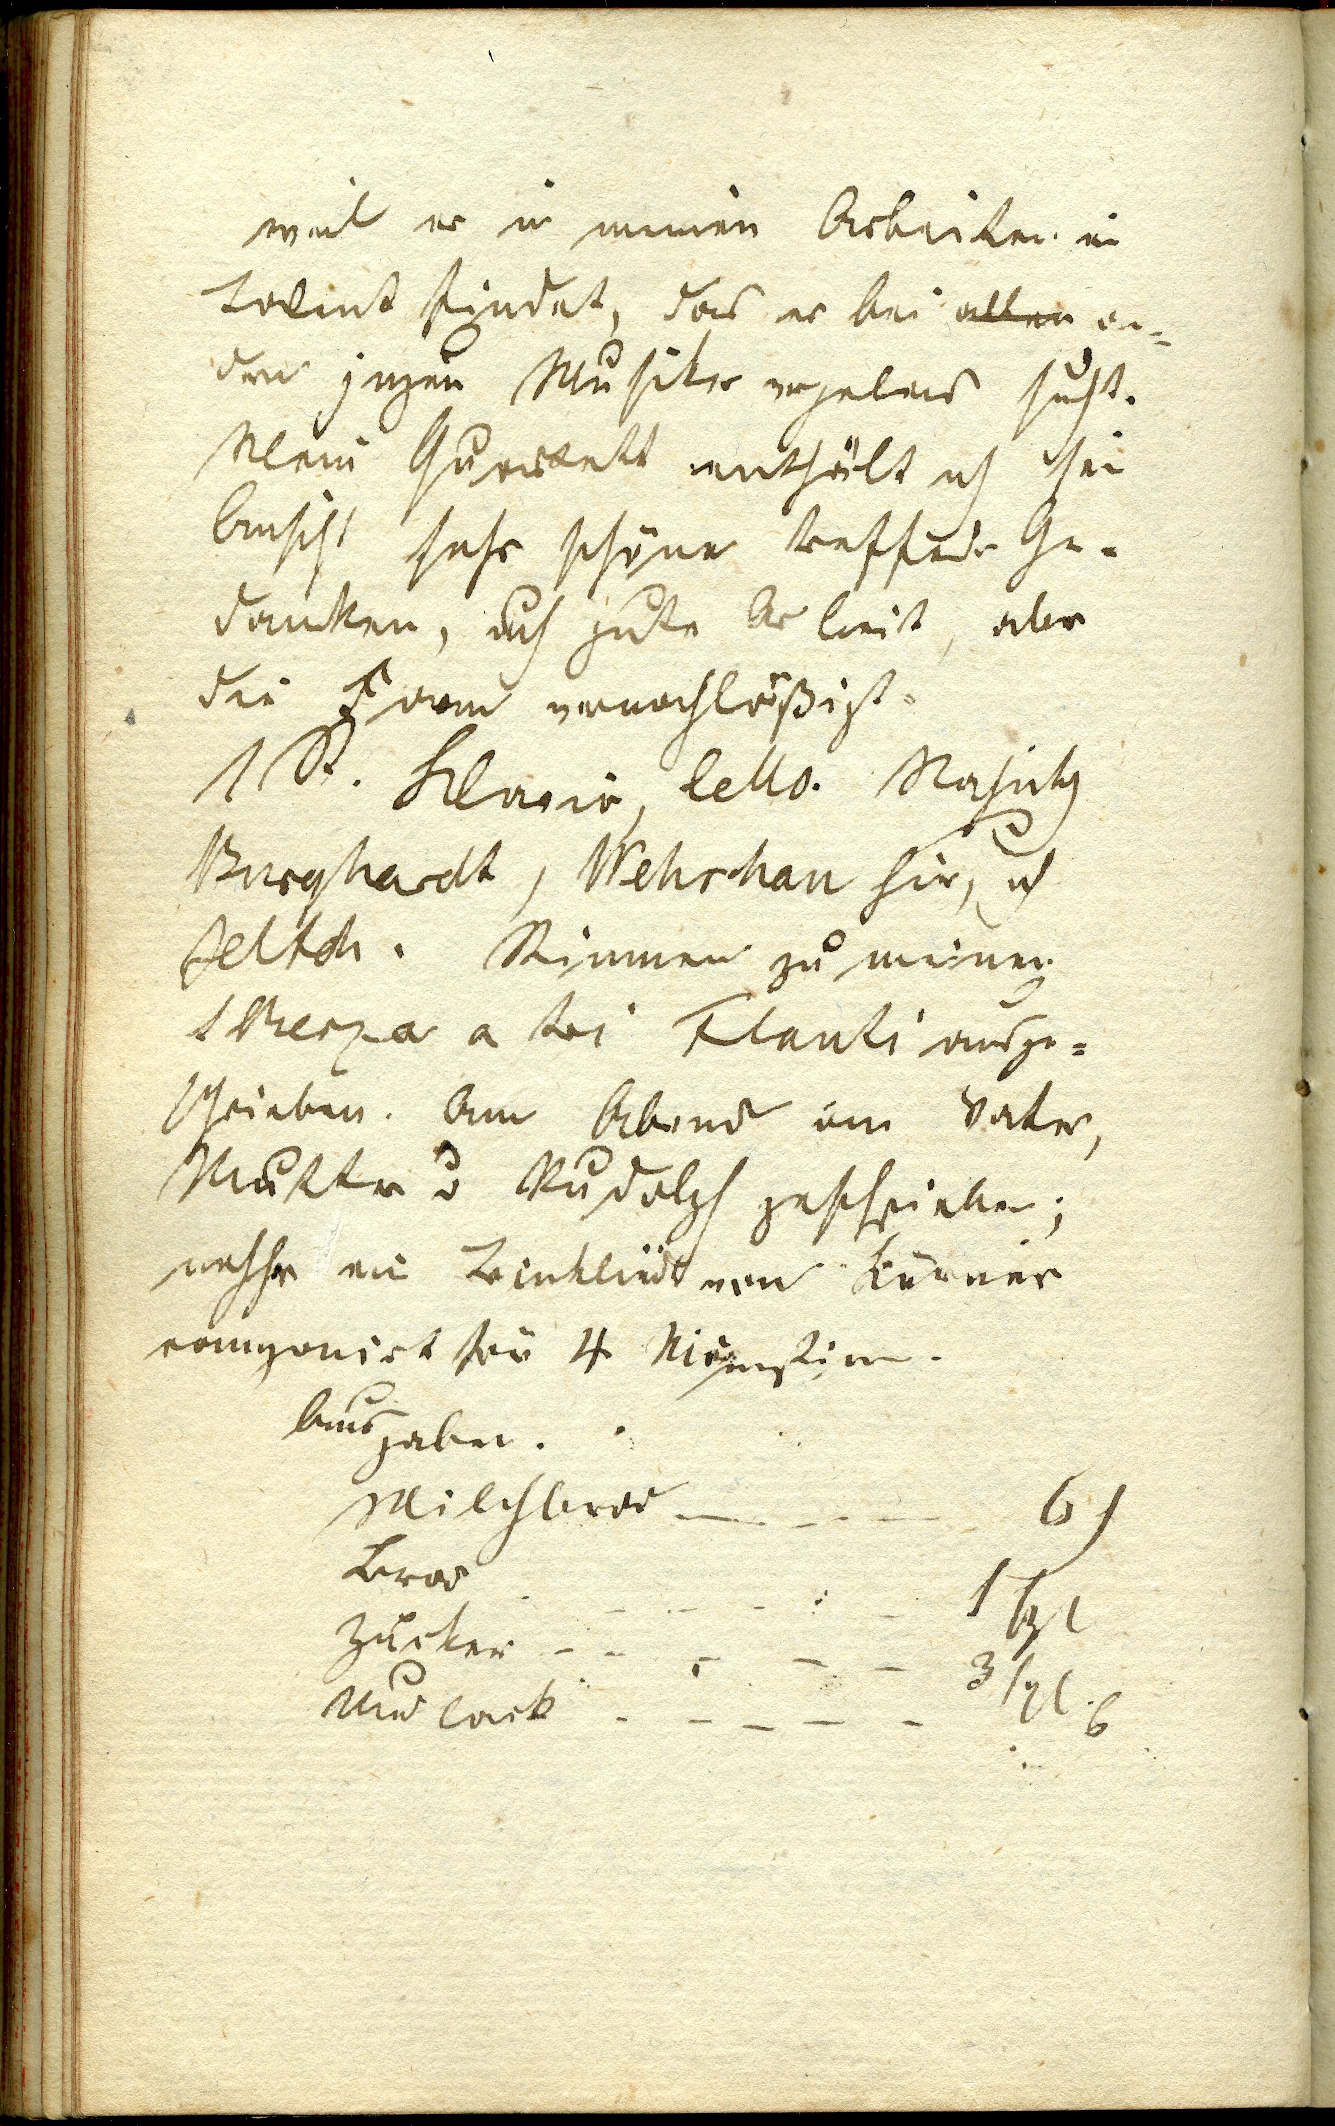 weil er in meinen Arbeiten ein
Talent findet, das er bei allen an-
dern jungen Musiker vergebens sucht.
Mein Quartett enthält nach seiner
Ansicht sehr schöne treffende Ge-
danken, auch gute Arbeit, aber
die Form vernachläßigt.
1 St. Klavir, Cello. Nachmittag
Burghardt, Wehrhan hier, auch
Stimmen zu meiner
Scherza a tri Flauti ausge-
schrieben. Am Abend an Vater,
Mutter u Rudolph geschrieben;
nachher ein Trinklied von Körner
componirt für 4 Mänstim.
Ausgaben.
Milchbrod 6 d
Brod 1 sgl
Zucker 3 sgl 6